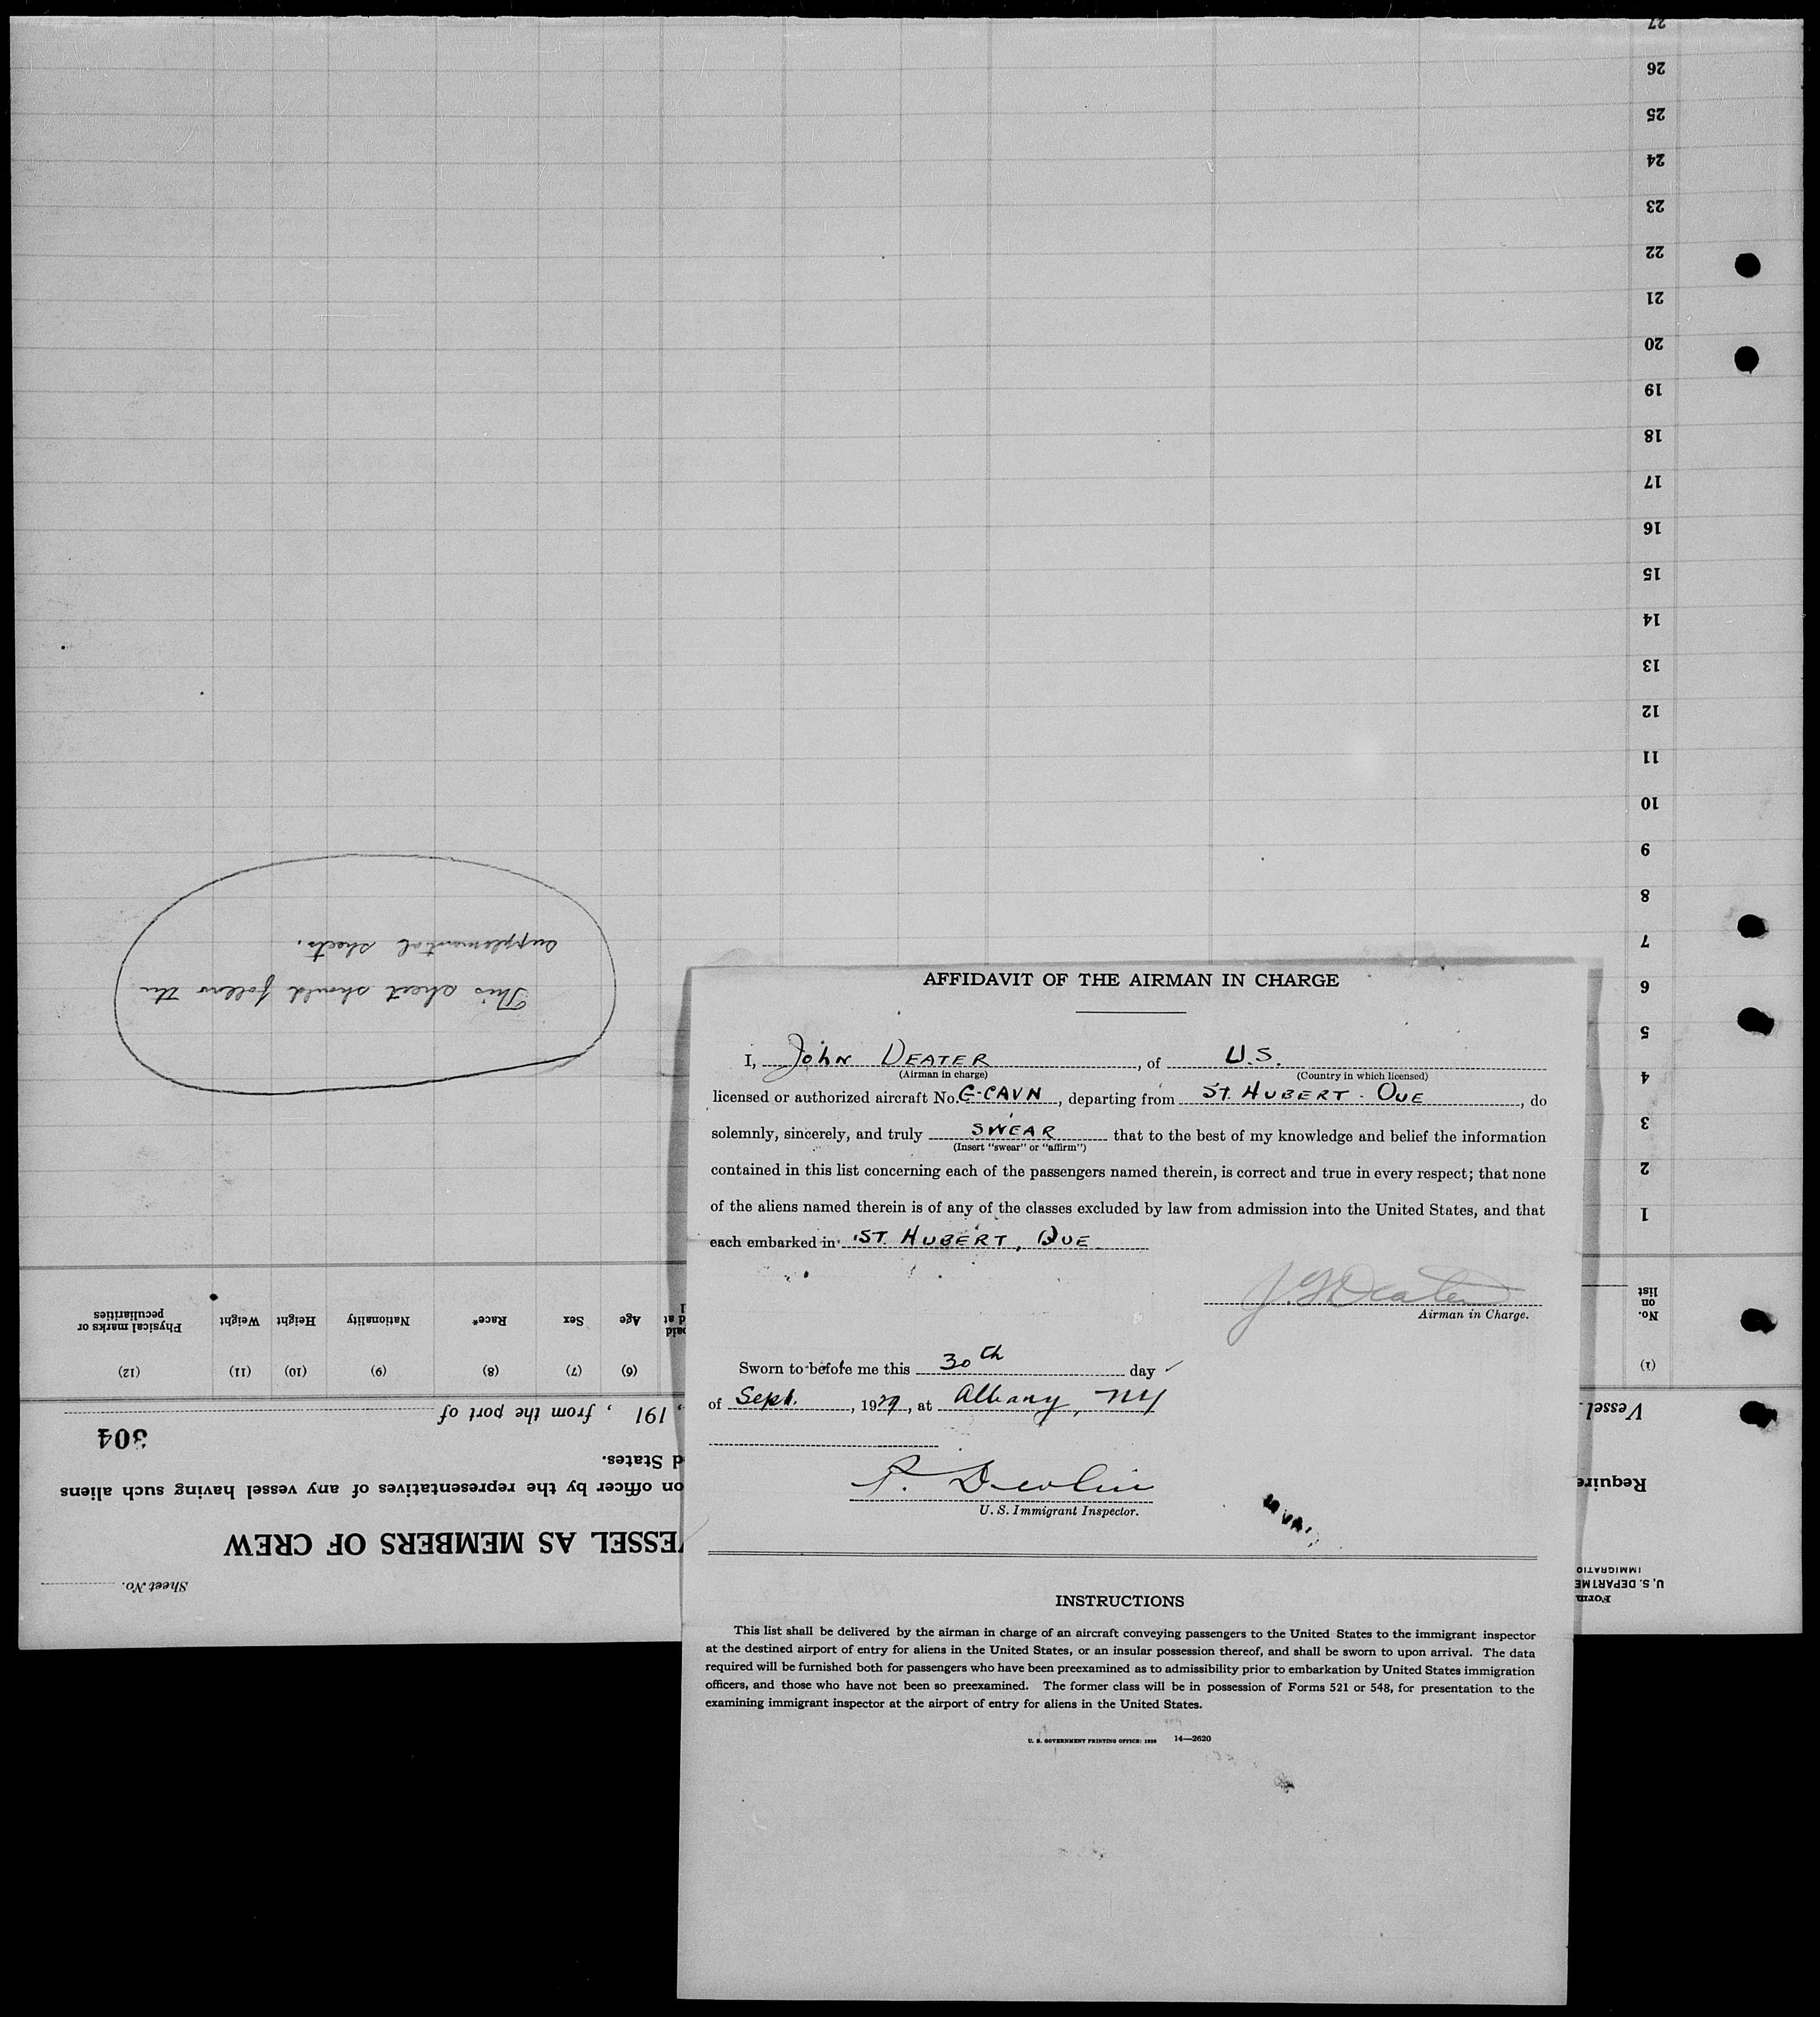 AFFIDAVIT OF THE AIRMAN IN CHARGE
I, John DEATER, of U.S.
(Airman in charge) (Country in which licensed)
licensed or authorized aircraft No. G-CAVN, departing from ST. HUBERT - QUE, do
solemnly, sincerely, and truly SWEAR that to the best of my knowledge and belief the information
(Insert "swear" or "affirm")
contained in this list concerning each of the passengers named therein, is correct and true in every respect; that none
of the aliens named therein is of any of the classes excluded by law from admission into the United States, and that
each embarked in ST. HUBERT, QUE
Airman in Charge.
Sworn to before me this 30th day
of Sept., 1929, at Albany, NY
P. Devlin
U. S. Immigrant Inspector.
INSTRUCTIONS
This list shall be delivered by the airman in charge of an aircraft conveying passengers to the United States to the immigrant inspector
at the destined airport of entry for aliens in the United States, or an insular possession thereof, and shall be sworn to upon arrival. The data
required will be furnished both for passengers who have been preexamined as to admissibility prior to embarkation by United States immigration
officers, and those who have not been so preexamined. The former class will be in possession of Forms 521 or 548, for presentation to the
examining immigrant inspector at the airport of entry for aliens in the United States.
U. S. GOVERNMENT PRINTING OFFICE: 1928 14—2620
Form
U. S. DEPARTME
IMMIGRATIO
Sheet No.
ESSEL AS MEMBERS OF CREW
Require
on officer by the representatives of any vessel having such aliens
d States.
304
Vessel
, 191 , from the port of
(1) (6) (7) (8) (9) (10) (11) (12)
No. on list
Age Sex Race* Nationality Height Weight Physical marks or peculiarities
1
2
3
4
5
6
7
8
9
10
11
12
13
14
15
16
17
18
19
20
21
22
23
24
25
26
27
This sheet should follow the
supplemental sheets.